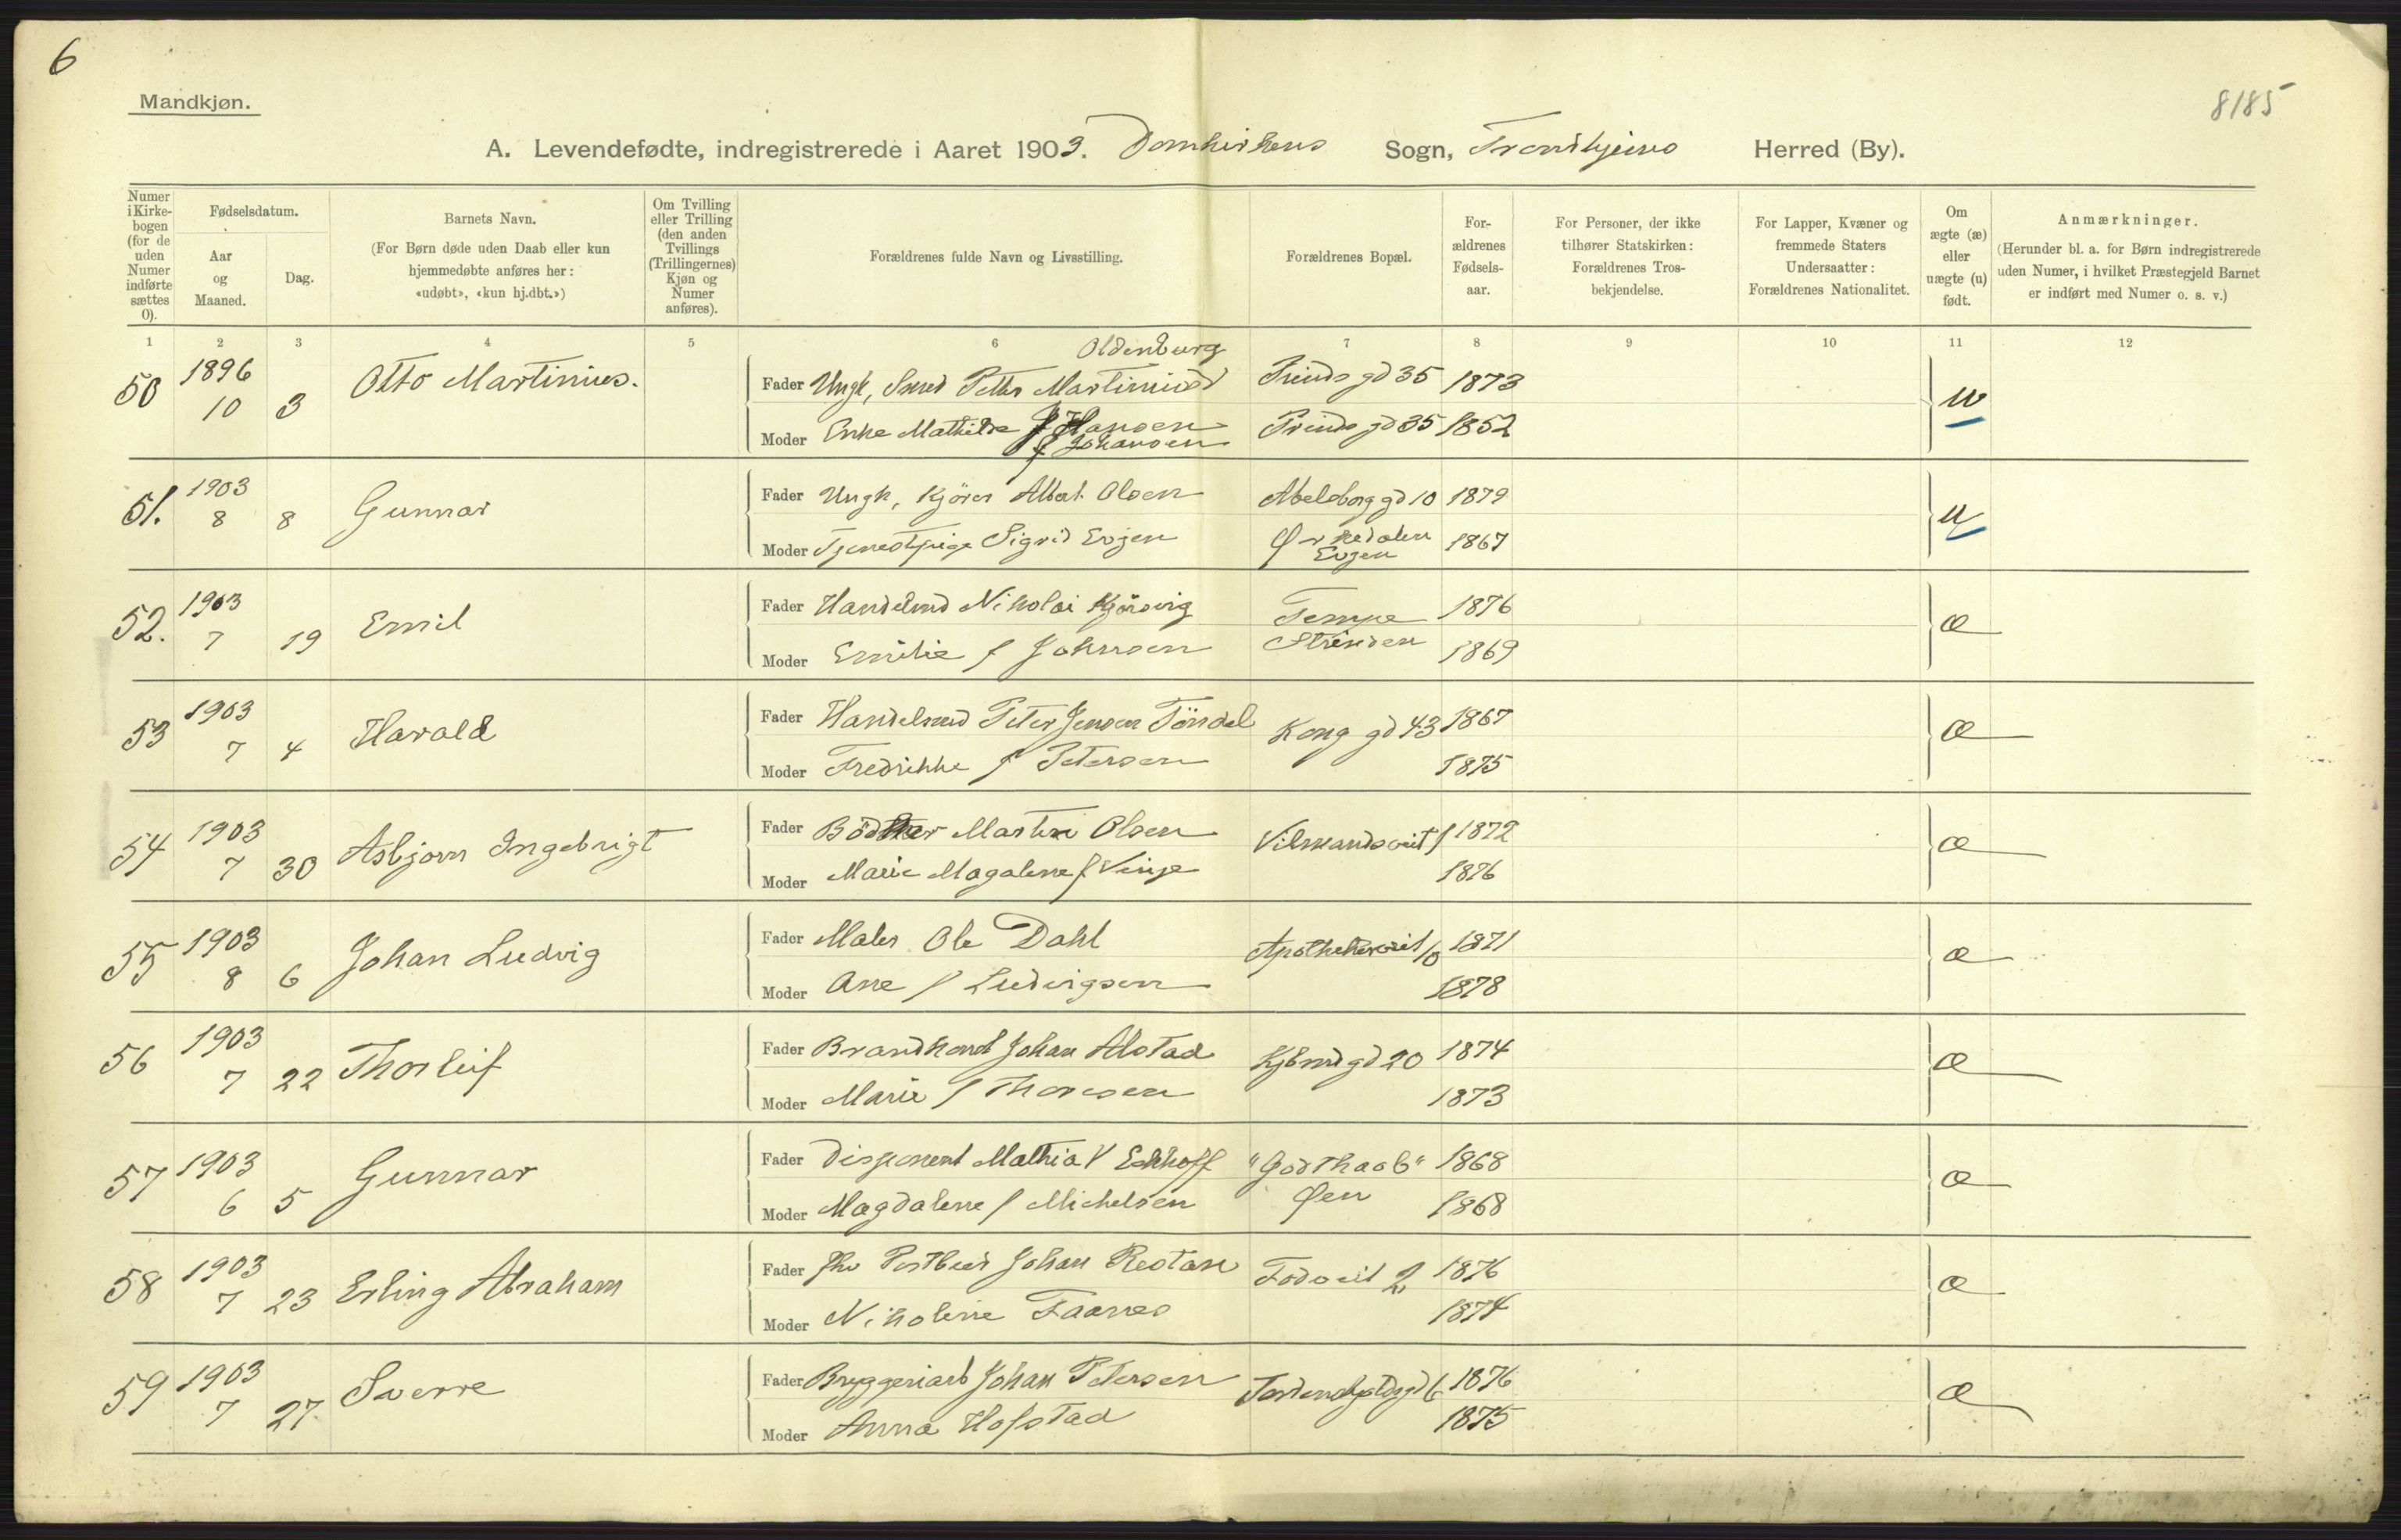 6
Mandkjøn.
8185
A. Levendefødte, indregistrerede i Aaret 1903. Domkirkens Sogn, Trondhjems Herred (By).
Numer i Kirkebogen (for de uden Numer indførte sættes 0).
Fødselsdatum.
Aar og Maaned.
Dag.
Barnets Navn.
(For Børn døde uden Daab eller kun hjemmedøbte anføres her: «udøbt», «kun hj.dbt.»)
Om Tvilling eller Trilling (den anden Tvillings (Trillingernes) Kjøn og Numer anføres).
Forældrenes fulde Navn og Livsstilling.
Forældrenes Bopæl.
Forældrenes Fødselsaar.
For Personer, der ikke tilhører Statskirken: Forældrenes Trosbekjendelse.
For Lapper, Kvæner og fremmede Staters Undersaatter: Forældrenes Nationalitet.
Om ægte (æ) eller uægte (u) født.
Anmærkninger.
(Herunder bl. a. for Børn indregistrerede uden Numer, i hvilket Præstegjeld Barnet er indført med Numer o. s. v.)
1 2 3 4 5 6 7 8 9 10 11 12
Oldenburg
50 1896 10 3 Otto Martinius. Fader Ungk, Smed Petter Martinius Prinds gd 35 1873 u
Moder Enke Mathilde Hansen f Johansen Prinds gd 35 1852
51. 1903 8 8 Gunnar Fader Ungk, Kjører Albert Olsen Abelsborg gd 10 1879 u
Moder Tjenestpige Sigrid Evjen Ørkedalen Evjen 1867
52. 1903 7 19 Emil Fader Handelsmd Nikolai Kjørsvig Tempe 1876 æ
Moder Emilie f Johnsen Strinden 1869
53 1903 7 4 Harald Fader Handelsmd Peter Jensen Töndel Kong gd 43 1867 æ
Moder Fredrikke f Petersen 1875
54 1903 7 30 Asbjørn Ingebrigt Fader Bödker Martin Olsen Vilmandsveit 1 1872 æ
Moder Marie Magalene f Vinje 1876
55 1903 8 6 Johan Ludvig Fader Maler Ole Dahl Apothekerveit 10 1871 æ
Moder Ane f Ludvigsen 1878
56 1903 7 22 Thorleif Fader Brandkonst Johan Alstad Kjbmd gd 20 1874 æ
Moder Marie f Thoresen 1873
57 1903 6 5 Gunnar Fader Disponent Mathias V Eckhoff "Godthaab" 1868 æ
Moder Magdalene f Michelsen Øen 1868
58 1903 7 23 Erling Abraham Fader Postbud Johan Restan Fodveit 2 1876 æ
Moder Nikoline Faanes 1874
59 1903 7 27 Sverre Fader Bryggeriarb Johan Petersen Tordenskjoldsgd 6 1876 æ
Moder Anna Hofstad 1875